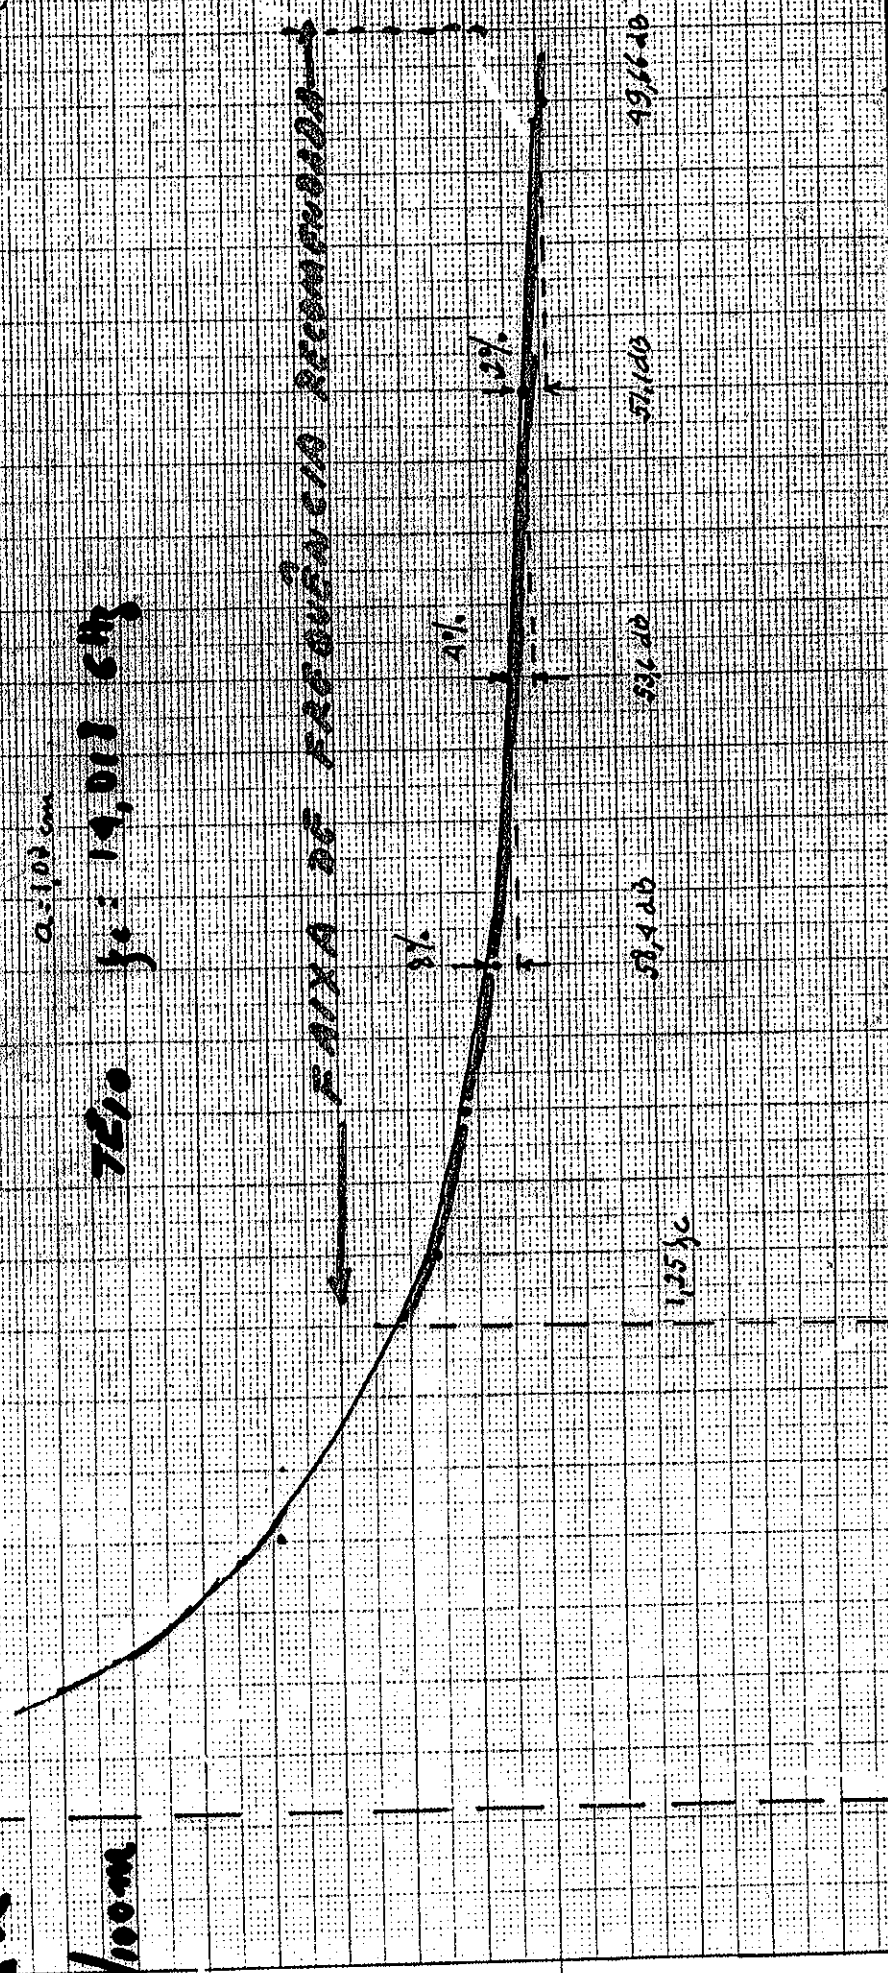 a=1,07 cm
/100m
TE1,0 fc: 14,018 GHz
FAIXA DE FREQUÊNCIA RECOMENDADA
8%
4%
2%
1,25 fc
58,4 dB
53,6 dB
51,1 dB
49,66 dB